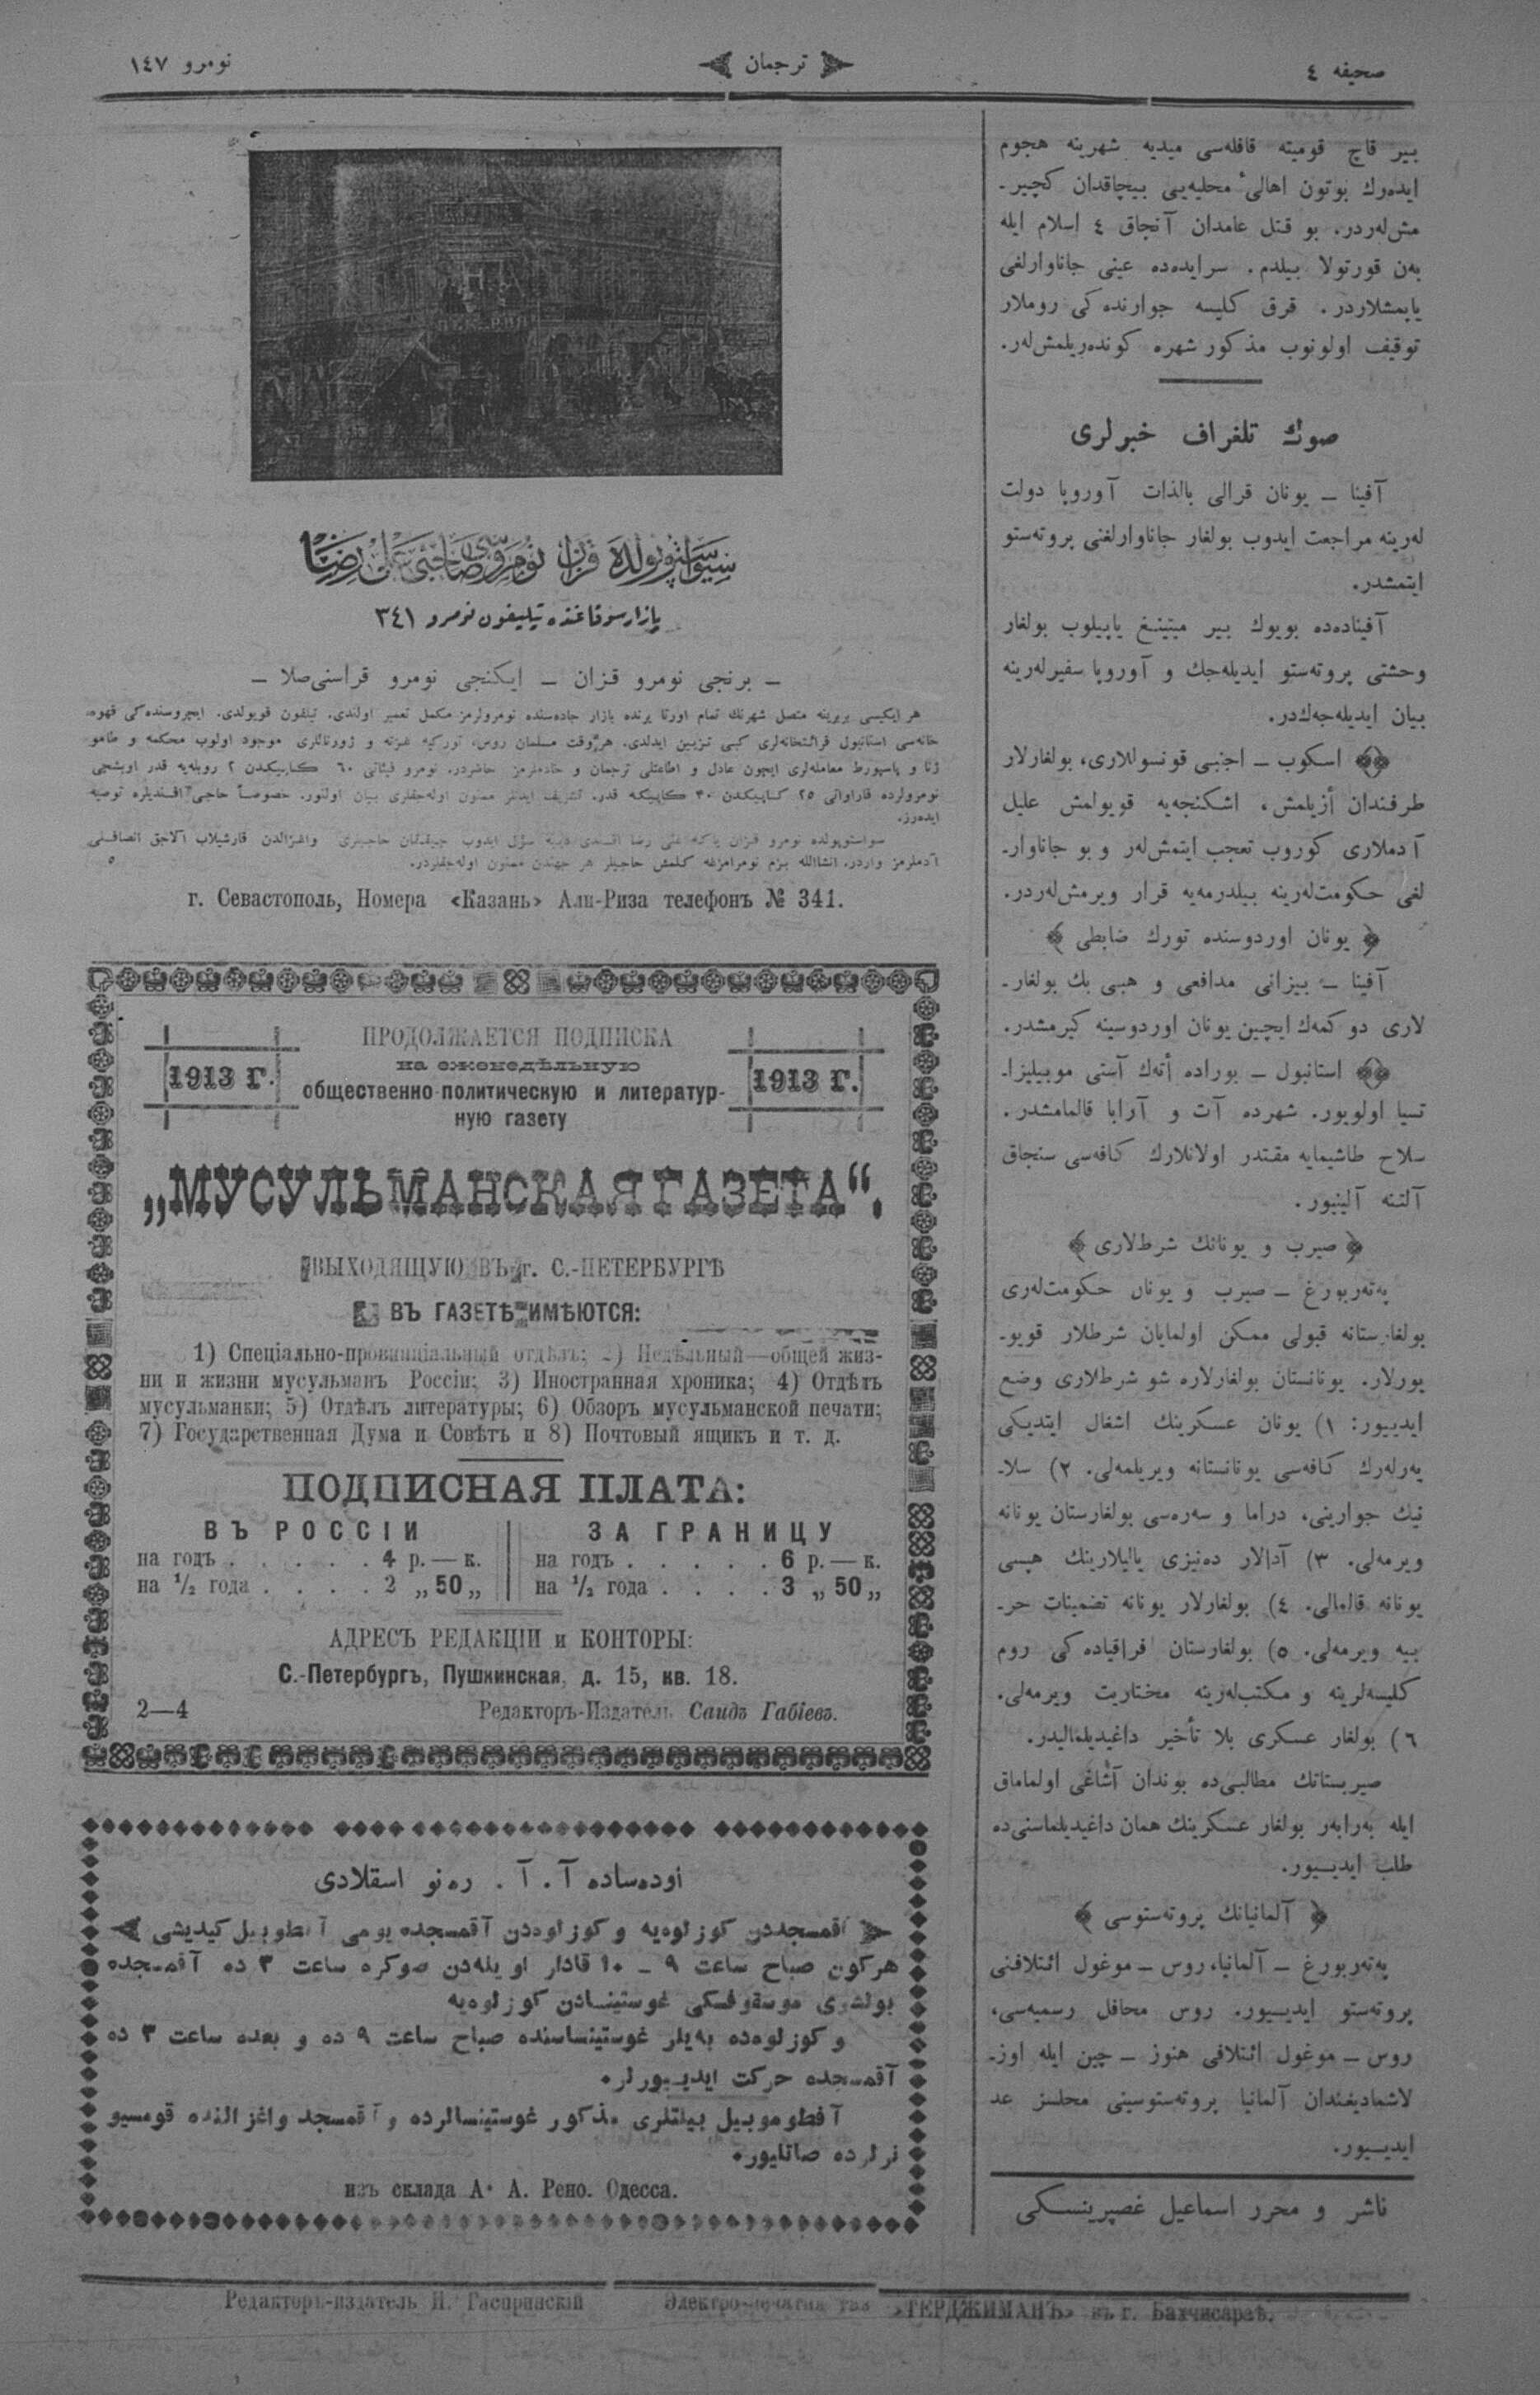 صحیفه ٤
ترجمان
نومرو ١٤٧
بیر قاچ قومیته قافله‌سی میدیه شهرینه هجوم
ایده‌رك بوتون اهالیٔ محلیه‌یی بیچاقدان كچیر-
مش‌لەردر. بو قتل عامدان آنجاق ٤ اسلام ایله
بەن قورتولا بیلدم. سرایدەدە عینی جاناوارلغی
یاپمشلاردر. قرق كلیسه جوارنده‌كی روملار
توقیف اولونوب مذكور شهره كوندەریلمش‌لەر.
صوڭ تلغراف خبرلری
آفینا – یونان قرالی بالذات آوروپا دولت
لەرینه مراجعت ایدوب بولغار جاناوارلغنی پروتەستو
ایتمشدر.
آفینادەدە بویوك بیر میتینغ یاپیلوب بولغار
وحشتی پروتەستو ایدیلەجك و آوروپا سفیرلەرینه
بیان ایدیلەجەكدر.
اسكوب – اجنبی قونسوللاری، بولغارلار
طرفندان أزیلمش، اشكنجەیه قویولمش علیل
آدملاری كوروب تعجب ایتمش‌لەر و بو جاناوار-
لغی حكومت‌لەرینه بیلدرمەیه قرار ویرمش‌لەردر.
یونان اوردوسنده تورك ضابطی
آفینا – بیزانی مدافعی وهبی بك بولغار-
لاری دوكمەك ایچین یونان اوردوسینه كیرمشدر.
استانبول – بوراده أتەك آستی موبیلیزا-
تسیا اولویور. شهرده آت و آرابا قالمامشدر.
سلاح طاشیمایه مقتدر اولانلارك كافه‌سی سنجاق
آلتنه آلینیور.
صیرب و یونانك شرطلاری
پەتەربورغ – صیرب و یونان حكومت‌لەری
بولغارستانه قبولی ممكن اولمایان شرطلار قویو-
یورلار. یونانستان بولغارلاره شو شرطلاری وضع
ایدییور: ١) یونان عسكرینك اشغال ایتدیكی
یەرلەرك كافه‌سی یونانستانه ویریلمەلی. ٢) سلا-
نیك جوارینی، دراما و سەرەسی بولغارستان یونانه
ویرمەلی. ٣) آدالار دەنیزی یالیلارینك هپسی
یونانه قالمالی. ٤) بولغارلار یونانه تضمینات حر-
بیه ویرمەلی. ٥) بولغارستان فراقیادەكی روم
كلیسه‌لرینه و مكتب‌لەرینه مختاریت ویرمەلی.
٦) بولغار عسكری بلا تأخیر داغیدیلمالیدر.
صیربستانك مطالبی‌ده بوندان آشاغی اولماماق
ایله بەرابەر بولغار عسكرینك همان داغیدیلماسنی‌ده
طلب ایدییور.
آلمانیانك پروتەستوسی
پەتەربورغ – آلمانیا، روس – موغول ائتلافنی
پروتەستو ایدییور. روس محافل رسمیه‌سی،
روس – موغول ائتلافی هنوز – چین ایله اوز-
لاشمادیغندان آلمانیا پروتەستوسینی محلسز عد
ایدییور.
ناشر و محرر اسماعیل غصپرینسكی
سیواستوپولده قزان نومروسی صاحبی علی رضا
بازار سوقاغنده تیلیفون نومرو ٣٤١
– برنجی نومرو قزان – ایكنجی نومرو قراسنی‌صلا –
هر ایكیسی بربرینه متصل شهرنك تمام اورتا یرنده بازار جاده‌سنده نومرولرمز مكمل تعمیر اولندی. تیلفون قویولدی. ایچروسنده‌كی قهوه
خانه‌سی استانبول قرائتخانه‌لری كبی تزیین ایدلدی. هر وقت مسلمان روس، توركیه غزته و ژورناللری موجود اولوب محكمه و طامو
ژنا و پاسپورط معامله‌لری ایچون عادل و اطاعتلی ترجمان و خادملرمز حاضردر. نومرو فیئاتی ٦٠ كاپیكدن ٢ روبله‌یه قدر اوبشچی
نومرولرده قاراواتی ٢٥ كاپیكدن ٣٠ كاپیكه قدر. تشریف ایدنلر ممنون اوله‌جقلری بیان اولنور. خصوصاً حاجی افندیلره توصیه
ایدەرز.
سواستوپولده نومرو قزان یاكه علی رضا افندی دییه سؤال ایدوب واغزالدن قارشیلاب آلاجق انصافلی
آدملرمز واردر. انشاالله بزم نومرامزغه كلمش حاجیلر هر جهتدن ممنون اوله‌جقلردر. ٥
г. Севастополь, Номера «Казань» Али-Риза телефонъ № 341.
ПРОДОЛЖАЕТСЯ ПОДПИСКА
1913 г.
1913 г.
на еженедѣльную
общественно-политическую и литератур-
ную газету
„МУСУЛЬМАНСКАЯ ГАЗЕТА“,
ВЫХОДЯЩУЮ ВЪ г. С.-ПЕТЕРБУРГѢ
ВЪ ГАЗЕТѢ ИМѢЮТСЯ:
1) Спеціально-провинціальный отдѣлъ; 2) Недѣльный—общей жиз-
ни и жизни мусульманъ Россіи; 3) Иностранная хроника; 4) Отдѣлъ
мусульманки; 5) Отдѣлъ литературы; 6) Обзоръ мусульманской печати;
7) Государственная Дума и Совѣтъ и 8) Почтовый ящикъ и т. д.
ПОДПИСНАЯ ПЛАТА:
ВЪ РОССІИ
на годъ . . . . . . 4 р. — к.
на ½ года . . . . 2 „ 50 „
ЗА ГРАНИЦУ
на годъ . . . . . . 6 р. — к.
на ½ года . . . . 3 „ 50 „
АДРЕСЪ РЕДАКЦІИ и КОНТОРЫ:
С.-Петербургъ, Пушкинская, д. 15, кв. 18.
2—4
Редакторъ-Издатель Саидъ Габіевъ.
اودەساده آ. آ. رەنو اسقلادی
آقمسجددن كوزلوەیه و كوزلوەدن آقمسجده یومی آفطوبیل كیدیشی
هركون صباح ساعت ٩ – ١٠ قادار اویله‌دن صوكره ساعت ٣ ده آقمسجده
بولشوی موسقوفسكی غوستینسادن كوزلوەیه
و كوزلوەده بەیلر غوستینساسنده صباح ساعت ٩ ده و بعده ساعت ٣ ده
آقمسجده حركت ایدییورلر.
آفطوموبیل بیلتلری مذكور غوستینسالرده و آقمسجد واغزالنده قومسیو
نرلرده صاتلیور.
изъ склада А. А. Рено. Одесса.
Редакторъ-издатель И. Гаспринскій
Электро-печатня газ. «ТЕРДЖИМАНЪ» въ г. Бахчисараѣ.